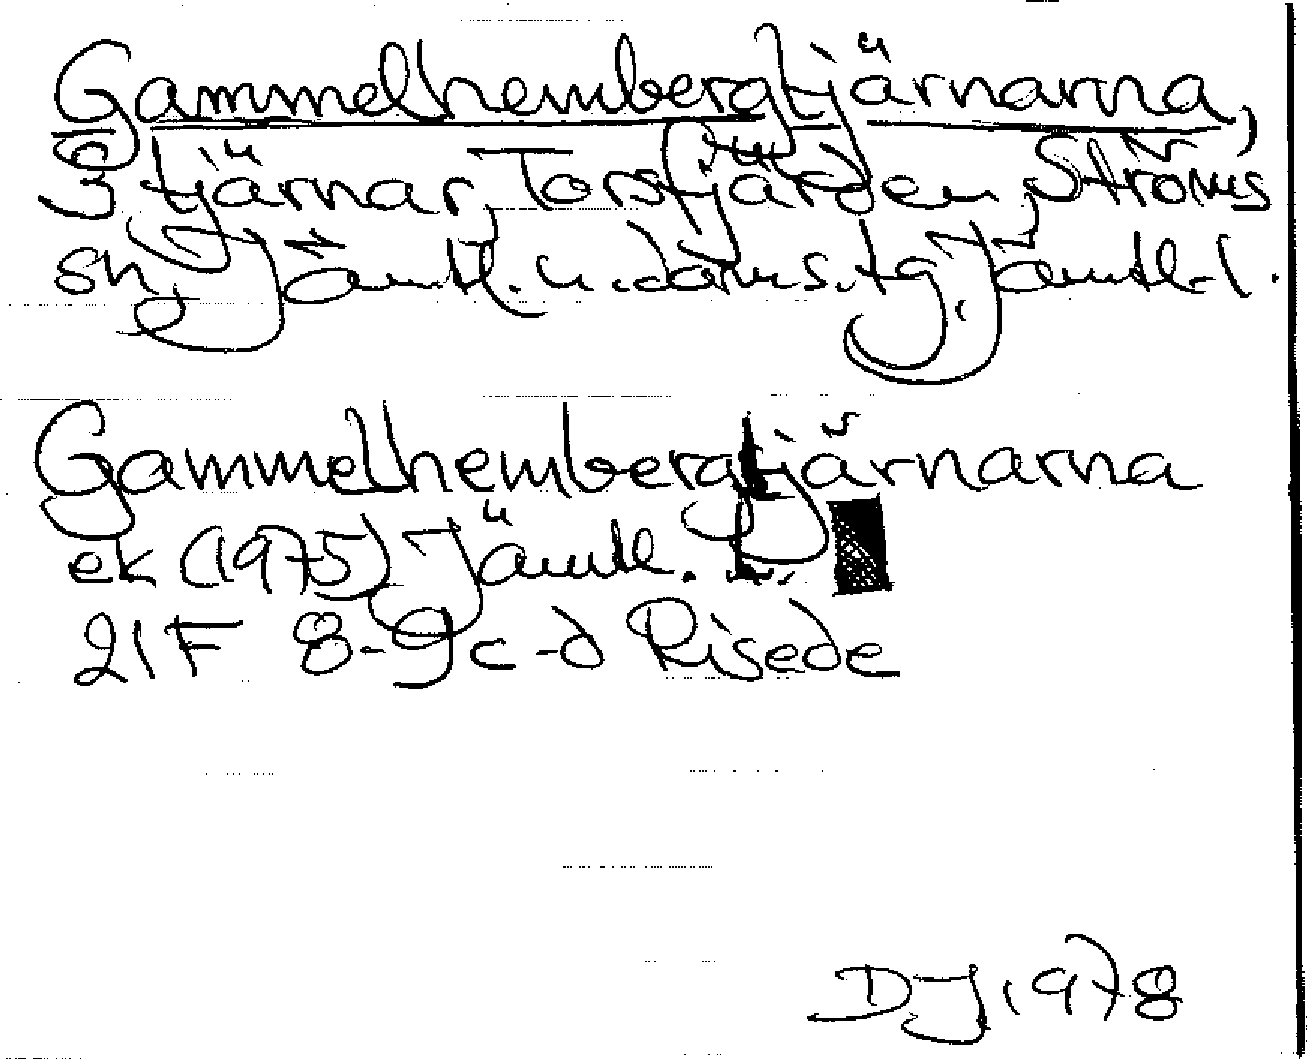 Gammelhembergtjärnarna,
3 tjärnar, Torsfjärden, Ströms
sn, Jämtl. n. doms. tg. Jämtl. l.
Gammelhembergtjärnarna
ek (1975) Jämtl. l.
21F 8-9 c-d Risede
DJ 1978